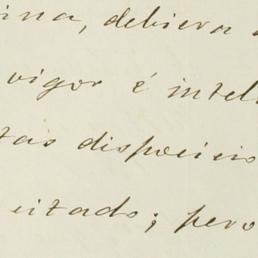 ina, debiera
vigor é intel
tas disposicio
citado; pero